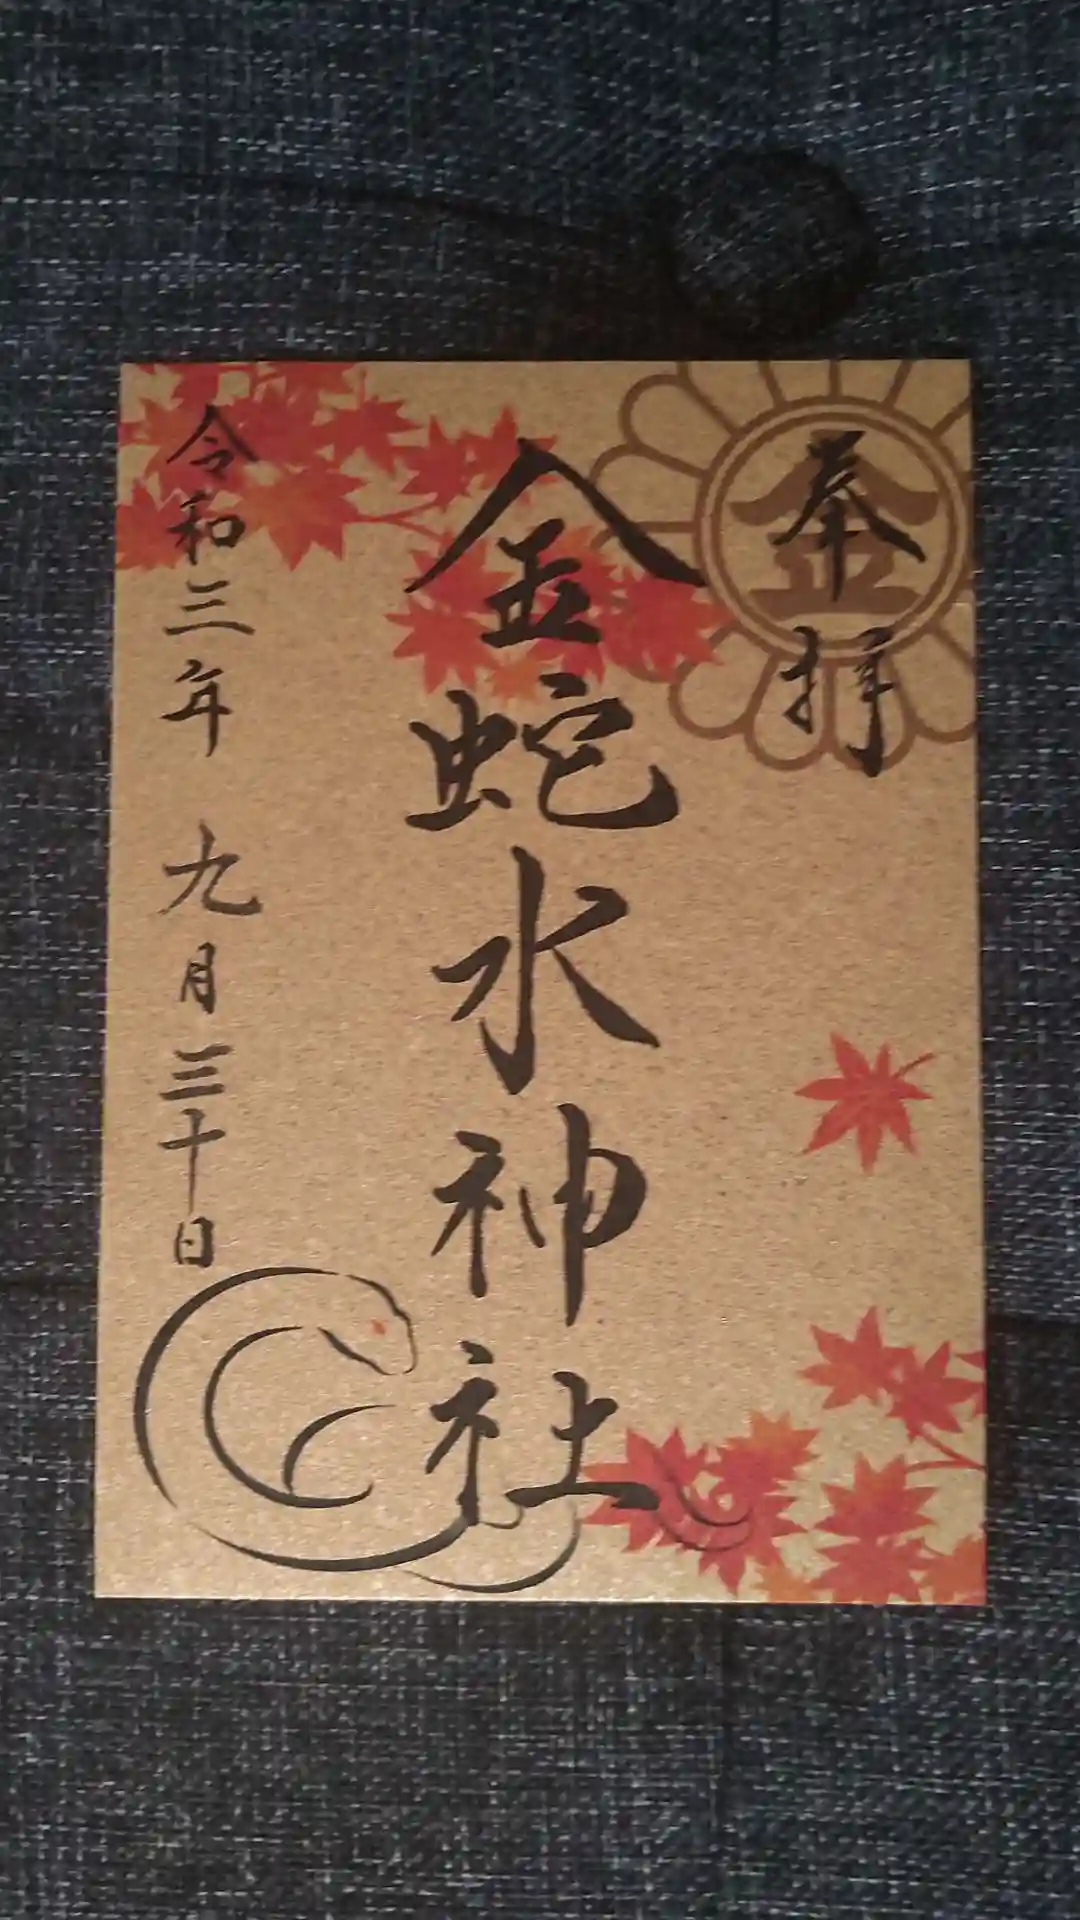 奉拝
金
金蛇水神社
令和三年 九月三十日